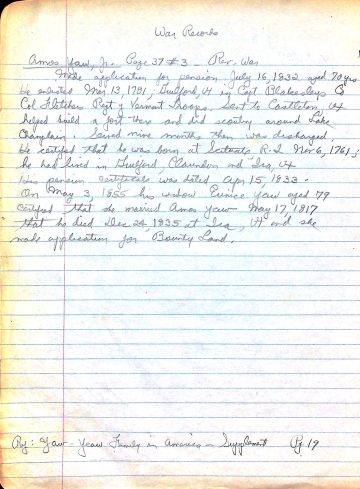 War Records
Amos Yaw, Jr. Page 37 #3 - Rev. War
Made application for pension July 16, 1832 aged 70 yrs
He enlisted Mar 13, 1781, Guilford, Vt in Capt Blakesleys Co
Col Fletchers Regt of Vermont Troops. Sent to Castleton, Vt
helped build a fort there and did scouting around Lake
Champlain. Served nine months then was discharged.
He certified that he was born at Scituate R.I. Nov 6, 1761;
he had lived in Guilford, Clarendon and Ira, Vt
His pension certificate was dated Apr 15, 1833.
On May 3, 1855 his widow Eunice Yaw aged 79
certified that she married Amos Yaw May 17, 1817
that he died Dec 24, 1835 at Ira, Vt and she
made application for Bounty Land.
Ref: Yaw - Yeaw Family in America - Supplement Pg 19